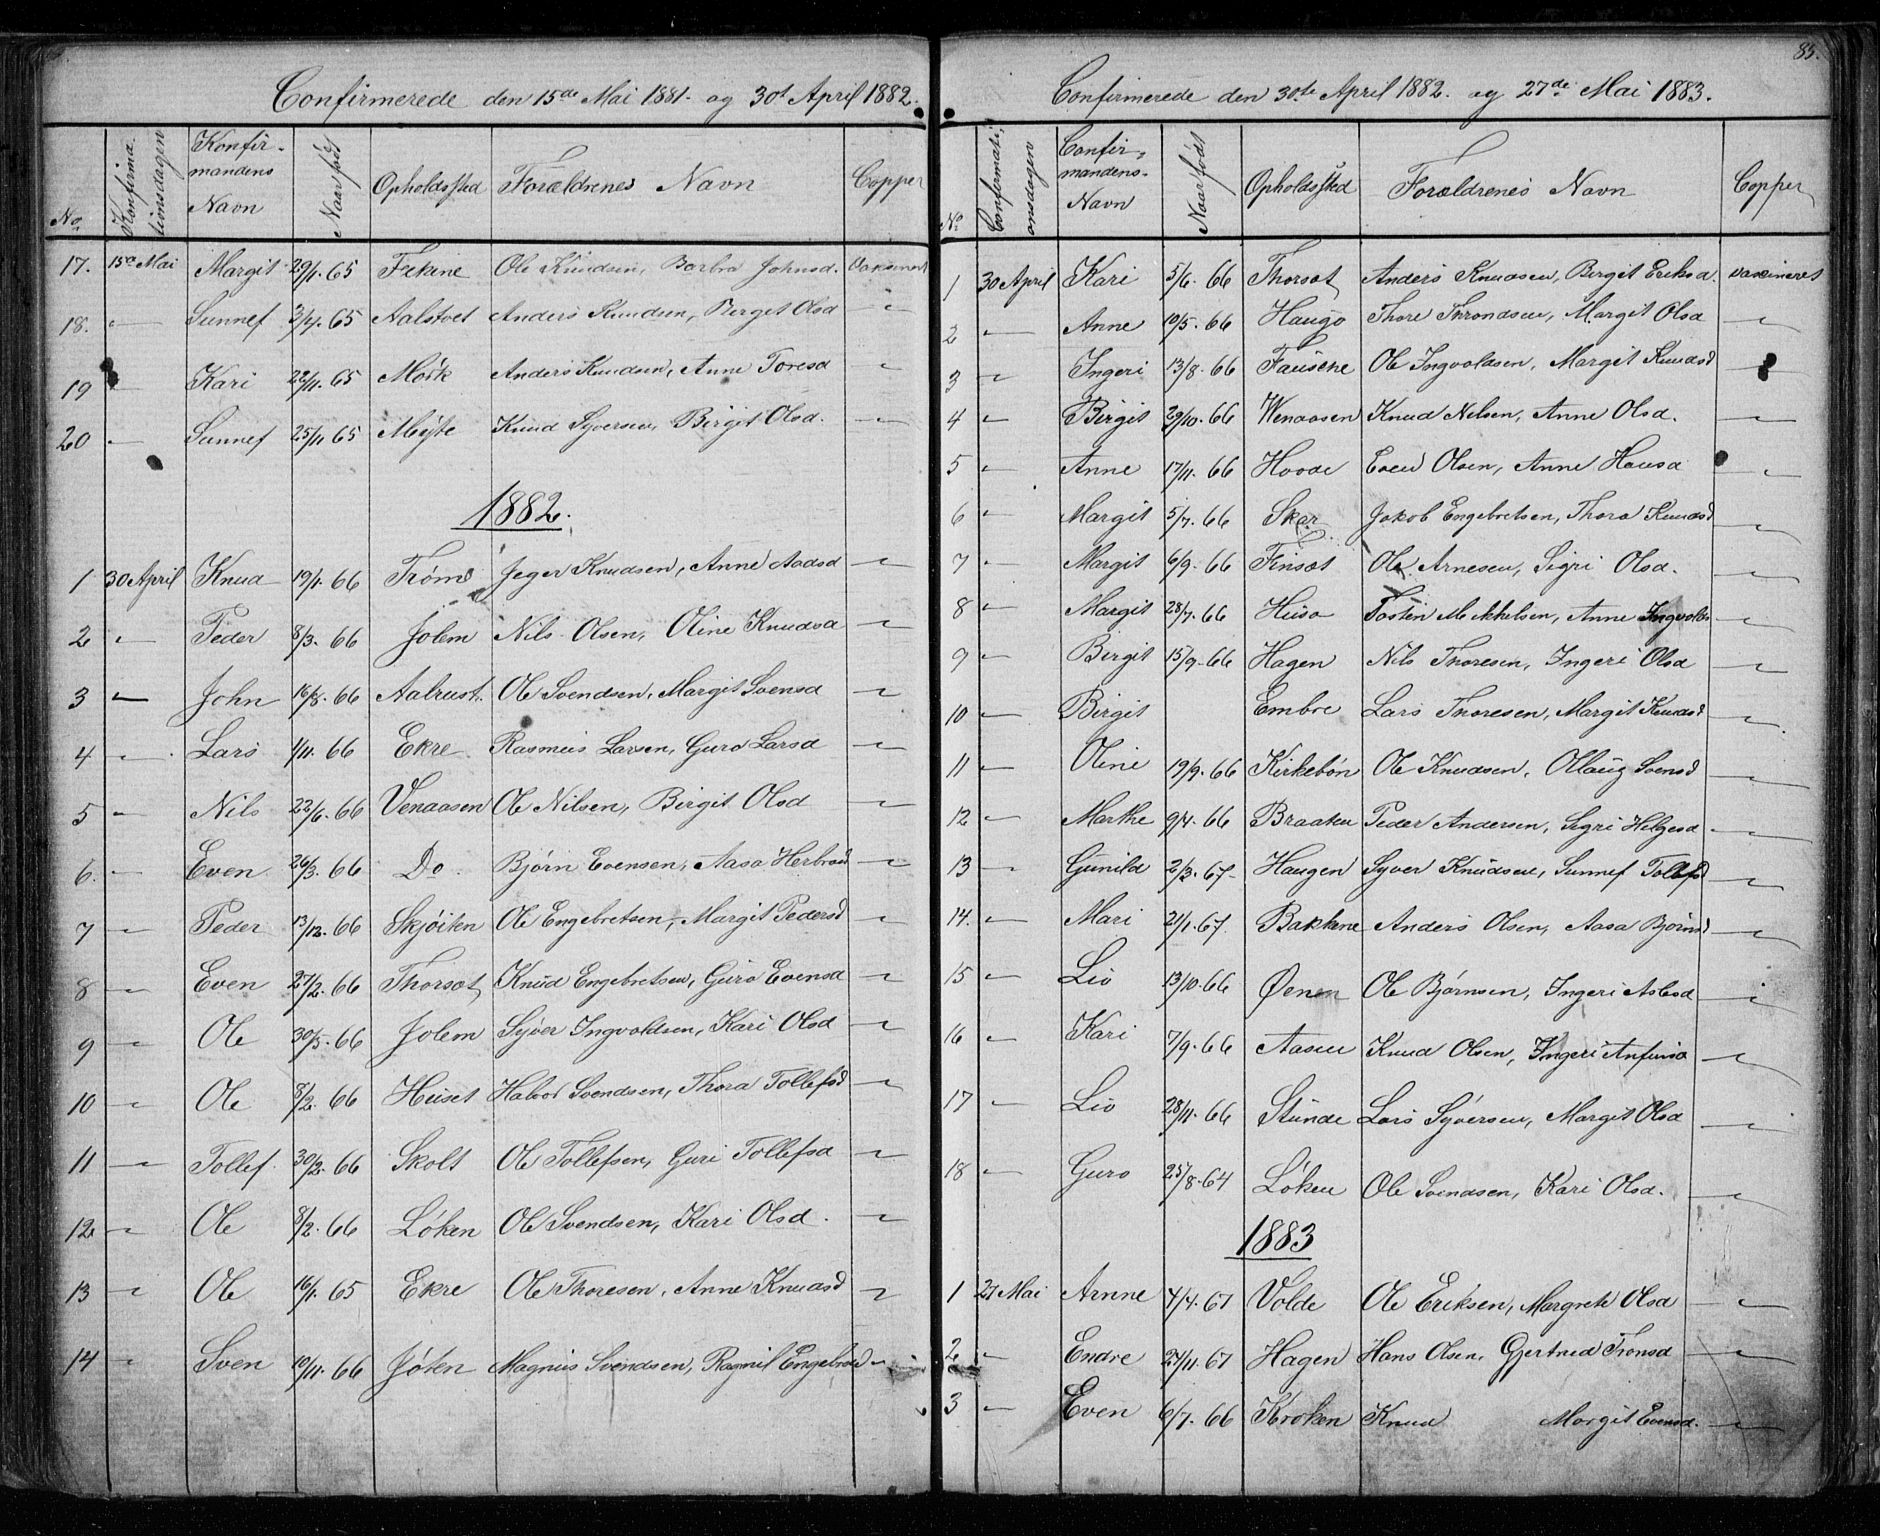 Confirmerede den 15de Mai 1881. og 30t April 1882.
No. Konfirmationsdagen Konfirmandens Navn Naar født Opholdssted Forældrenes Navn Copper
17. 15de Mai Margit 29/1. 65 Frkine Ole Knudsen, Barbro Johnsd. Vaksineret
18. " Sunnef 65 Aalstvet Anders Knudsen, Berget Olsd "
19 " Kari 22/11. 65 Mörk Anders Knudsen, Anne Toresd "
20 " Sunnef 25/11 65 Møjte Knud Syversen, Birgit Olsd. "
1882.
1 30 April Knud 19/1. 66 Trømd Jeger Knudsen, Anne Aadsd "
2 " Peder 8/3. 66 Jolem Nils Olsen, Oline Knudsd "
3 " John 16/8. 66 Aalrust. Ole Svendsen, Margit Svensd "
4 " Lars 1/11. 66 Ekre Rasmus Larsen, Guro Larsd "
5 " Nils 22/6. 66 Venaasen Ole Nilsen, Birgit Olsd "
6. " Even 26/3. 66 Do. Bjørn Evensen, Aasa Herbrand "
7 " Peder 13/12. 66 Skjøiten Ole Engebretsen, Margit Pedersd "
8 " Even 27/2. 66 Thorsæt Knud Engebretsen, Guro Evensd "
9 " Ole 30/5. 66 Jolem Syver Ingvoldsen, Kari Olsd "
10 " Ole 8/2. 66 Huset Halvor Svendsen, Thora Tollefsd "
11 " Tollef. 30/2. 66 Skolt Ole Tollefsen, Guri Tollefsd "
12 " Ole 8/2. 66 Løken Ole Svendsen, Kari Olsd. "
13 " Ole 16/1. 65 Ekre Ole Thoresen, Anne Knudsd "
14 " Sven 10/11. 66 Jøten Magnus Svendsen, Ragnil "
85.
Confirmerede den 30te April 1882. og 27de Mai 1883.
No. Confirmationsdagen Confirmandens Navn Naar født Opholdssted Forældrenes Navn Copper
1 30 April Kari 5/6. 66 Thorsæt Anders Knudsen, Birgit Eriksd. vaxineret
2 " Anne 10/5. 66 Haugo Thore Throndsen, Margit Olsd "
3 " Ingeri 13/8. 66 Fausche Ole Ingvoldsen, Margit Knudsd "
4 " Birgit 29/10. 66 Wenaasen Knud Nelsen, Anne Olsd. "
5 " Anne 17/11. 66 Hovde Even Olsen, Anne Hansd "
6 " Margit 5/7. 66 Skar Jakob Engebretsen, Thora Knudsd "
7 " Margit 6/9. 66 Finsæt Ole Arnesen, Sigri Olsd. "
8 " Margit 28/7. 66 Huso Tosten Mekkelsen, Anne "
9 " Birgit 15/9. 66 Hagen Nils Thoresen, Ingeri Olsd "
10 " Birgit Embre Lars Thoresen, Margit Knudsd "
11 " Oline 19/9. 66 Kirkebøn Ole Knudsen, Ollaug Svensd "
12 " Marthe 9/4. 66 Braaten Peder Andersen, Sigri Helgesd "
13 " Gunild 2/3. 67 Haugen Syver Knudsen, Sunnef Tollefsd "
14. " Mari 21/1. 67. Bakkene Anders Olsen, Aasa Bjørnsd "
15 " Liv 13/10. 66 Øenen Ole Bjørnsen, Ingeri Aslesd "
16 " Kari 7/9. 66 Aasen Knud Olsen, Ingeri "
17 " Liv 28/11. 66 Stunde Lars Syversen, Margit Olsd "
18 " Guro 25/8. 64 Løken Ole Svendsen, Kari Olsd. "
1883
1 27 Mai Arnne 4/4. 67 Volde Ole Eriksen, Margrete Olsd "
2 " Endre 24/11. 67 Hagen Hans Olsen, Gjertrud Tronsd "
3 " Even 6/7. 66 Kroken Knud Margit Evensd. "